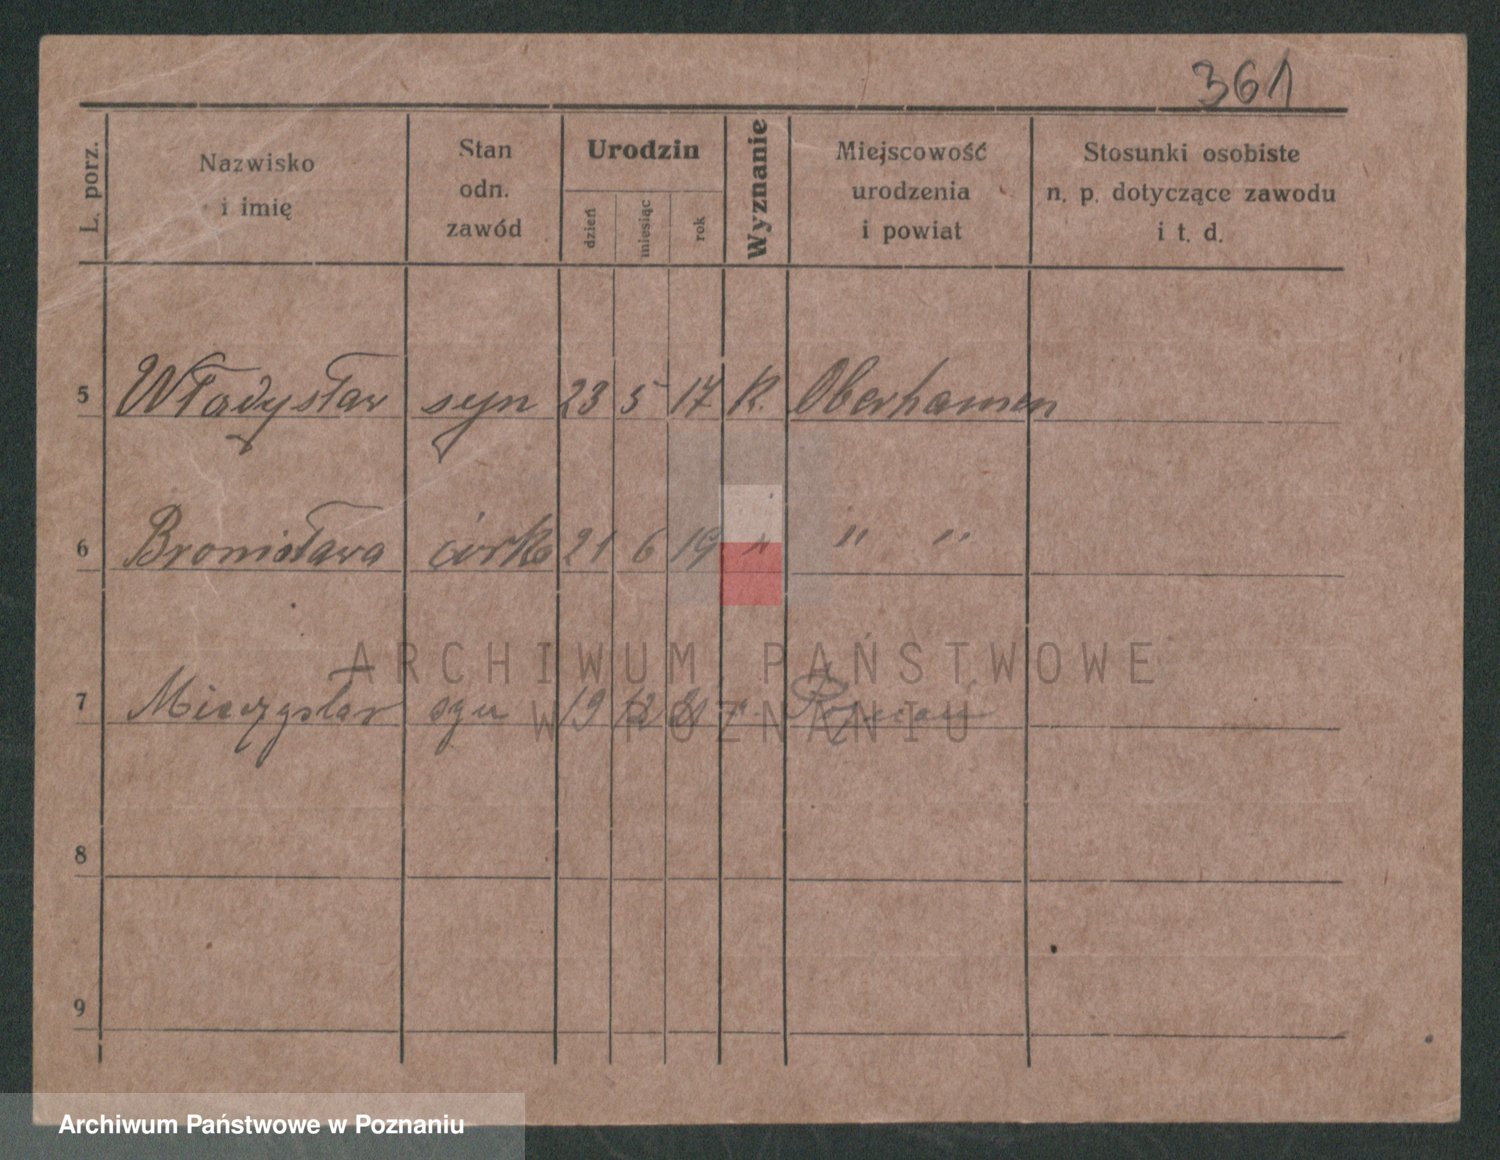 361
L. porz. Nazwisko i imię Stan odn. zawód Urodzin dzień miesiąc rok Wyznanie Miejscowość urodzenia i powiat Stosunki osobiste n. p. dotyczące zawodu i t. d.
5 Władysław syn 23 5 17 K. Oberhamen
6 Bronisława córka 21 6 19 " " "
7 Mieczysław syn 19 12 21 " Poznań
8
9
ARCHIWUM PAŃSTWOWE
W POZNANIU
Archiwum Państwowe w Poznaniu